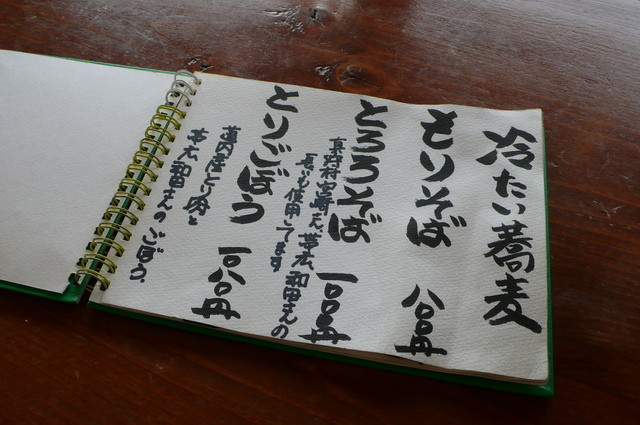 冷たい蕎麦
もりそば 八〇〇円
とろろそば 一〇〇〇円
真狩村宮崎さん、帯広和田さんの
長いも使用してます
とりごぼう 一一八〇円
道内産とり肉と
帯広和田さんのごぼう。